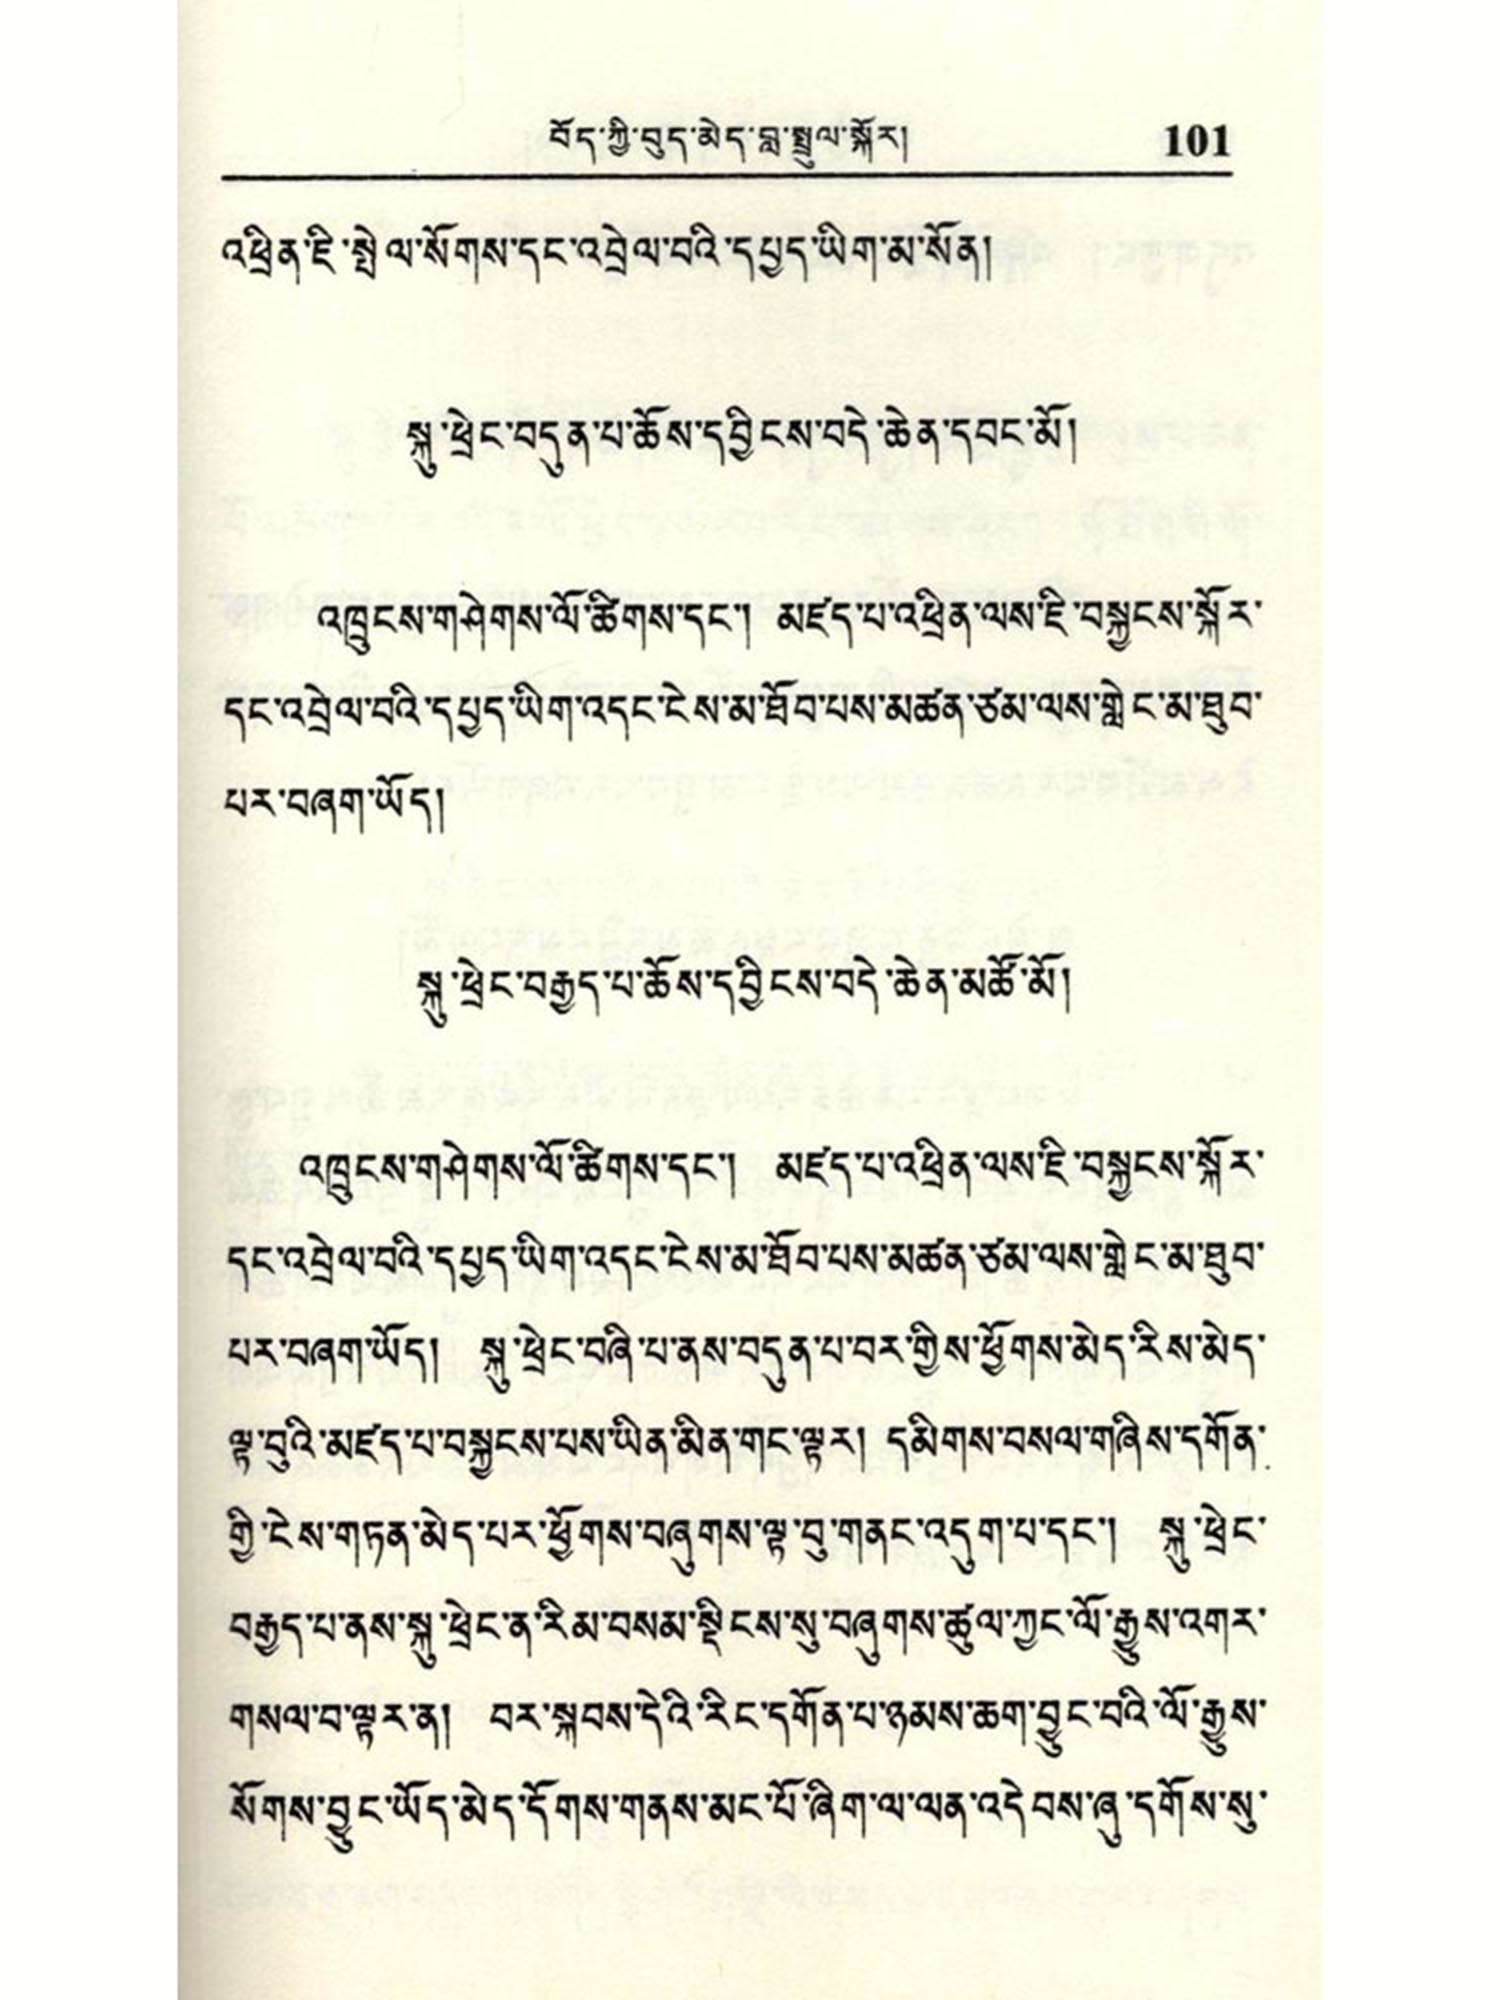 བོད་ཀྱི་བུད་མེད་བླ་སྤྲུལ་སྐོར། 101
འཕྲིན་ཇི་སྤེལ་སོགས་དང་འབྲེལ་བའི་དཔྱད་ཡིག་མ་སོན།
སྐུ་ཕྲེང་བདུན་པ་ཆོས་དབྱིངས་བདེ་ཆེན་དབང་མོ།
འཁྲུངས་གཤེགས་ལོ་ཚིགས་དང་། མཛད་པ་འཕྲིན་ལས་ཇི་བསྐྱངས་སྐོར་
དང་འབྲེལ་བའི་དཔྱད་ཡིག་འདང་ངེས་མ་ཐོབ་པས་མཚན་ཙམ་ལས་གླེང་མ་ཐུབ་
པར་བཞག་ཡོད།
སྐུ་ཕྲེང་བརྒྱད་པ་ཆོས་དབྱིངས་བདེ་ཆེན་མཚོ་མོ།
འཁྲུངས་གཤེགས་ལོ་ཚིགས་དང་། མཛད་པ་འཕྲིན་ལས་ཇི་བསྐྱངས་སྐོར་
དང་འབྲེལ་བའི་དཔྱད་ཡིག་འདང་ངེས་མ་ཐོབ་པས་མཚན་ཙམ་ལས་གླེང་མ་ཐུབ་
པར་བཞག་ཡོད། སྐུ་ཕྲེང་བཞི་པ་ནས་བདུན་པ་བར་གྱིས་ཕྱོགས་མེད་རིས་མེད་
ལྟ་བུའི་མཛད་པ་བསྐྱངས་པས་ཡིན་མིན་གང་ལྟར། དམིགས་བསལ་གཞིས་དགོན་
གྱི་ངེས་གཏན་མེད་པར་ཕྱོགས་བཞུགས་ལྟ་བུ་གནང་འདུག་པ་དང་། སྐུ་ཕྲེང་
བརྒྱད་པ་ནས་སྐུ་ཕྲེང་ན་རིམ་བསམ་སྡིངས་སུ་བཞུགས་ཚུལ་ཀྱང་ལོ་རྒྱུས་འགར་
གསལ་བ་ལྟར་ན། བར་སྐབས་དེའི་རིང་དགོན་པ་ཉམས་ཆག་བྱུང་བའི་ལོ་རྒྱུས་
སོགས་བྱུང་ཡོད་མེད་དོགས་གནས་མང་པོ་ཞིག་ལ་ལན་འདེབས་ཞུ་དགོས་སུ་